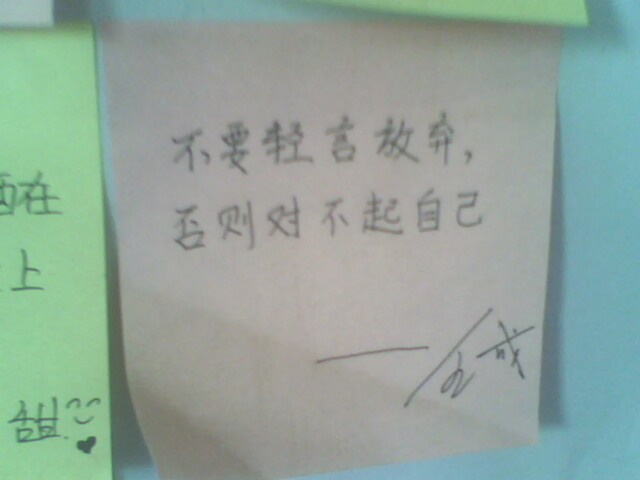 不要轻言放弃,
否则对不起自己
在
上
甜